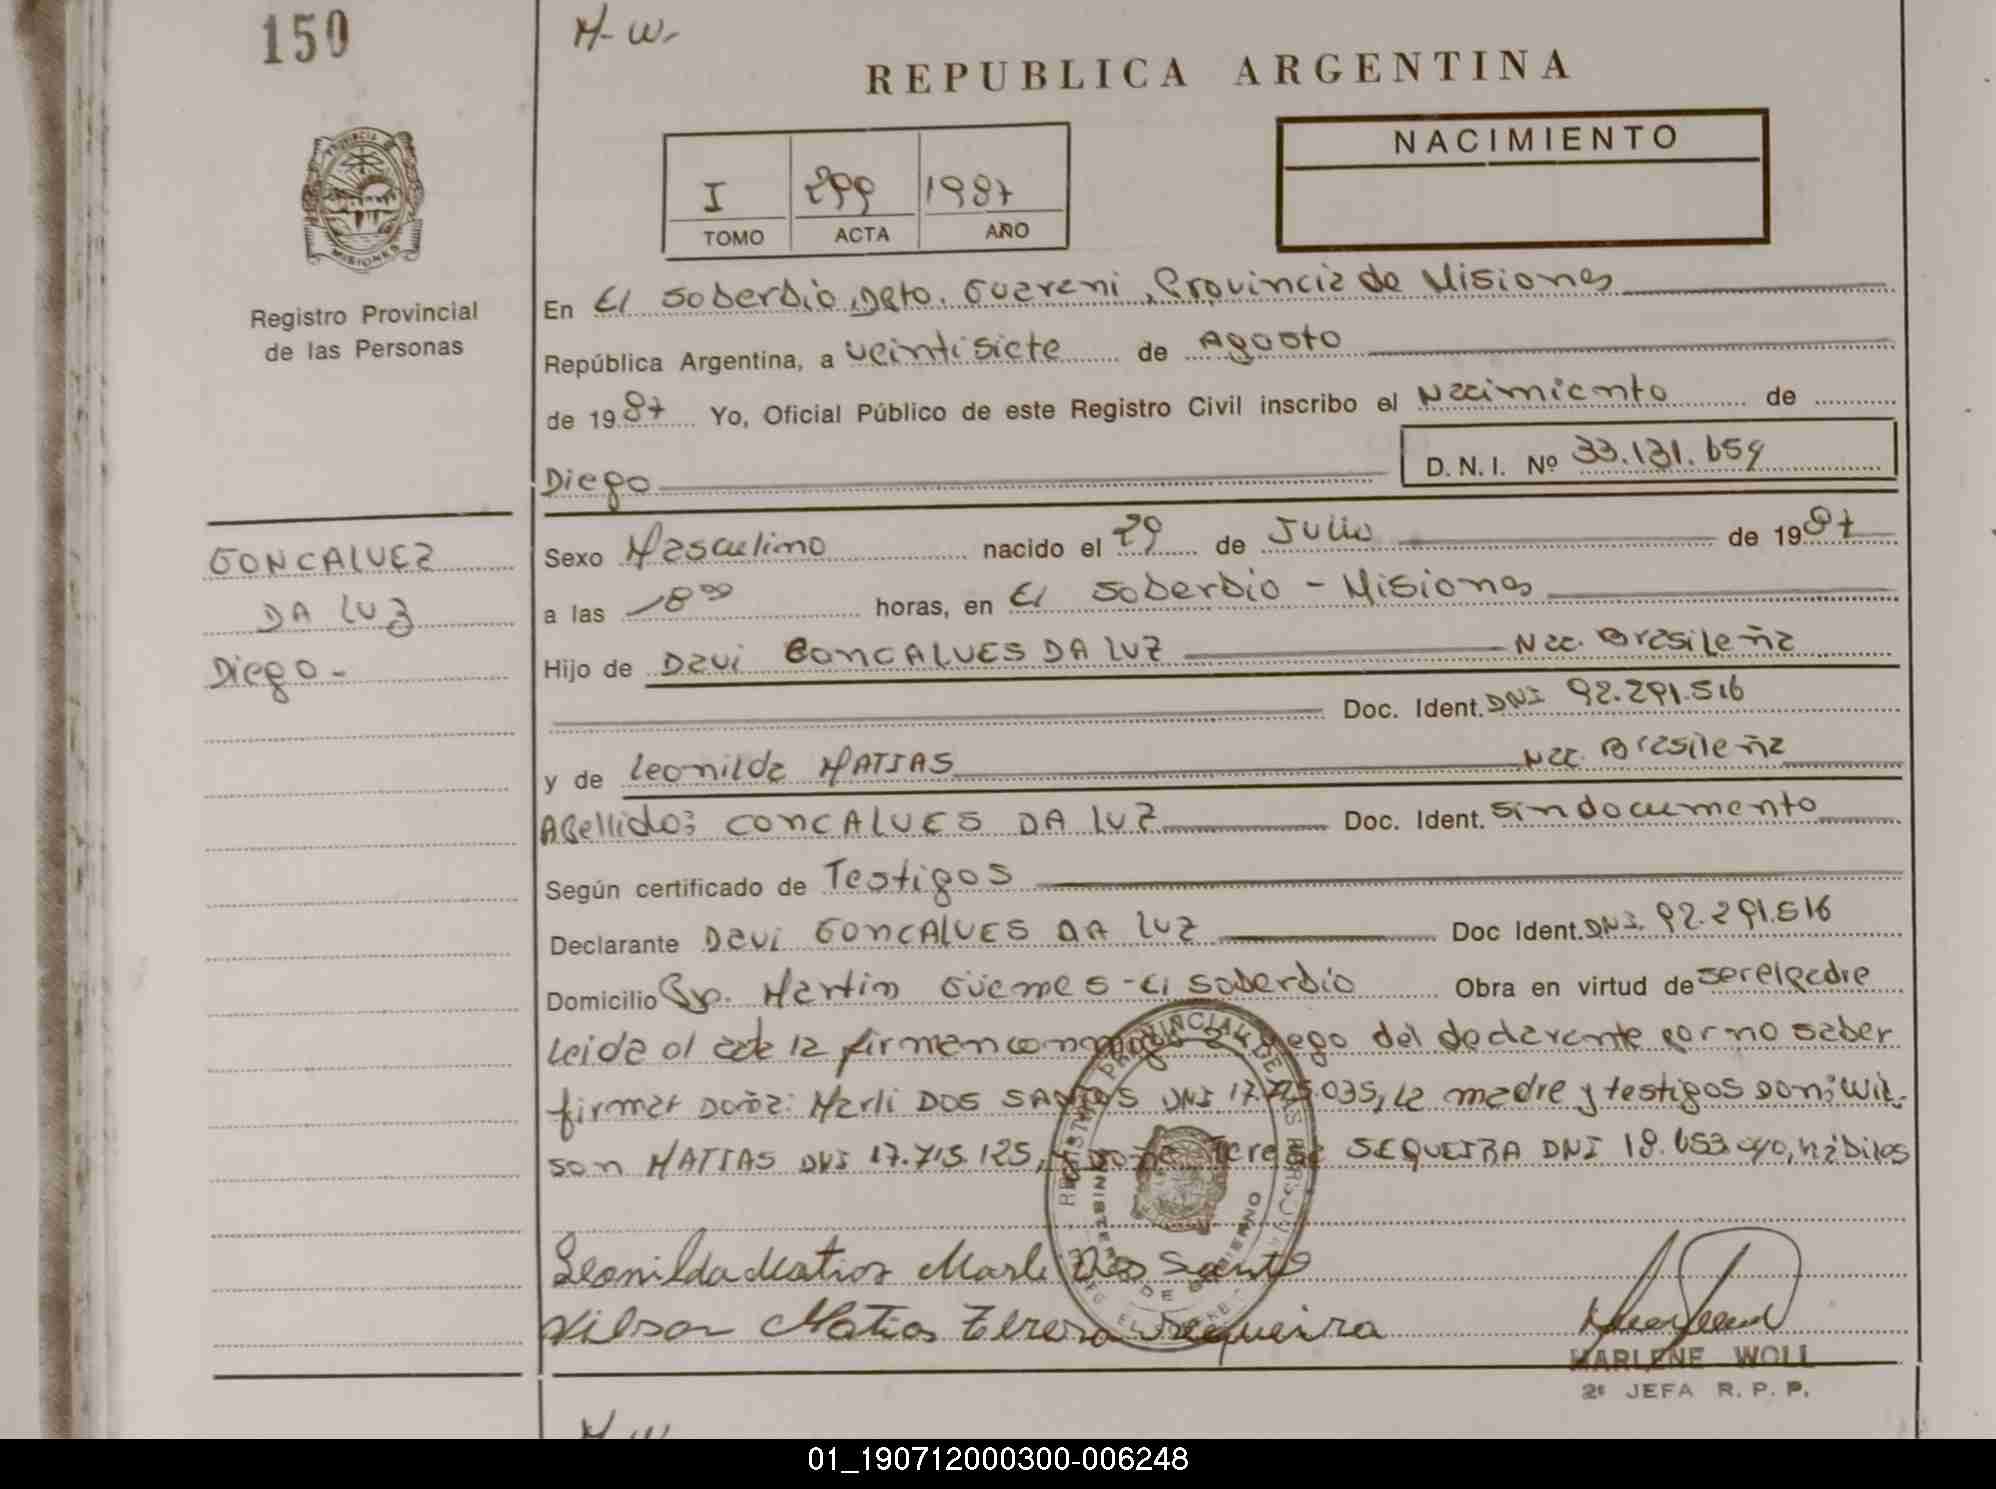 150
M-W-
REPUBLICA ARGENTINA
PROVINCIA
MISIONES
Registro Provincial
de las Personas
I 299 1987
TOMO ACTA AÑO
NACIMIENTO
En El Soberbio, Dpto. Guarani, Provincia de Misiones
República Argentina, a veintisiete de Agosto
de 1987 Yo, Oficial Público de este Registro Civil inscribo el Nacimiento de
Diego D. N. I. Nº 33.131.659
GONCALVEZ
DA LUZ
Diego-
Sexo Masculino nacido el 29 de Julio de 1987
a las 18 00 horas, en El Soberbio - Misiones
Hijo de Davi GONCALVES DA LUZ Nac. Brasileña
Doc. Ident. DNI 92.291.516
y de Leonilda MATIAS Nac. Brasileña
Apellido: GONCALVES DA LUZ Doc. Ident. sin documento
Según certificado de Testigos
Declarante Davi GONCALVES DA LUZ Doc Ident. DNI. 92.291.516
Domicilio Bo. Martin Güemes - El Soberbio Obra en virtud de ser el padre
Leida el acta la firman conmigo a ruego del declarante por no saber
firmar Doña: Marli DOS SANTOS DNI 17.725.035, la madre y testigos Don: Wil-
son MATIAS DNI 17.715.125, y Doña Teresa SEQUEIRA DNI 18.653.040, hábiles
REGISTRO PROVINCIAL DE LAS PERSONAS
MINISTERIO DE GOBIERNO
Leonilda Matias Marli Dos Santos
Vilson Matias Tereza Sequeira
MARLENE WOLL
2ª JEFA R. P. P.
01_190712000300-006248